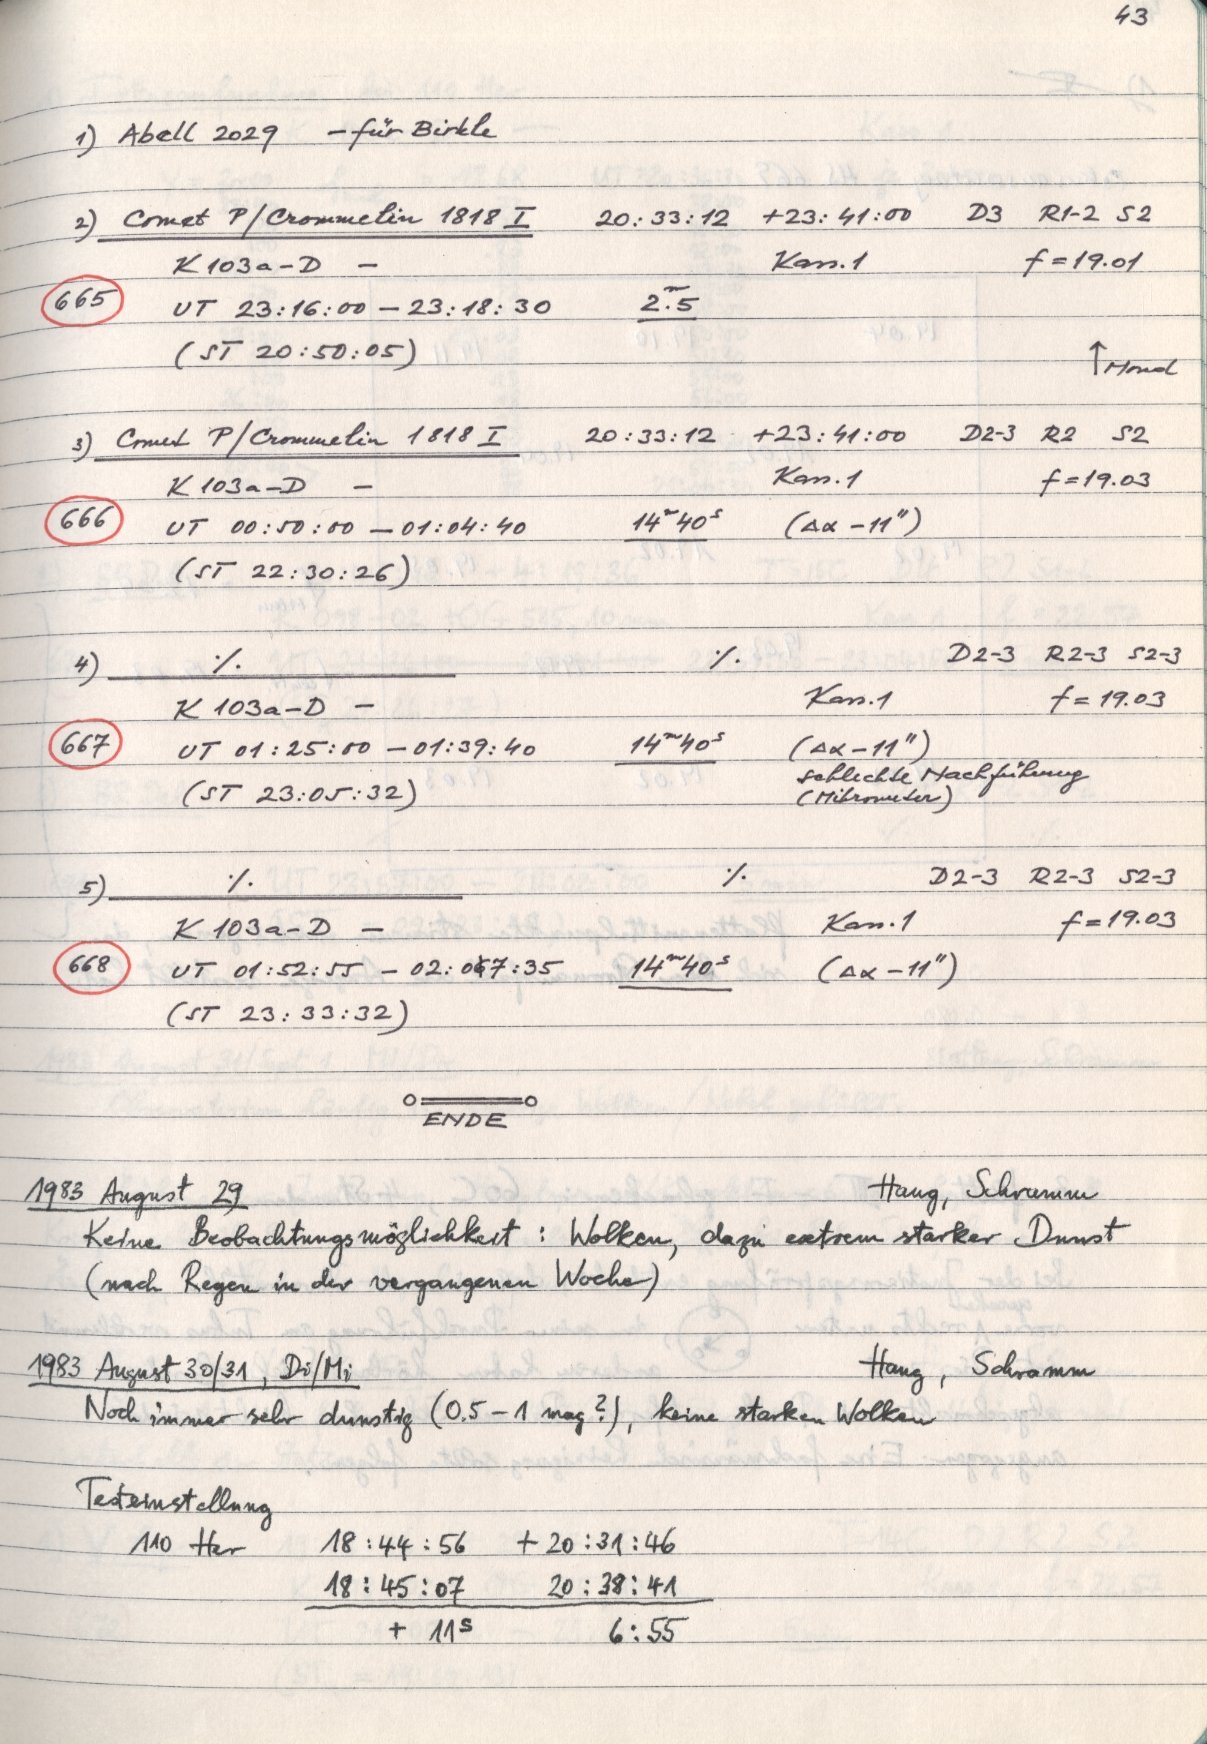 43
1) Abell 2029 - für Birkle
2) Comet P/Crommelin 1818 I 20:33:12 +23:41:00 D3 R1-2 S2
K 103a-D - Kass.1 f=19.01
665 UT 23:16:00 - 23:18:30 2.ᵐ5
(ST 20:50:05)
↑Mond
3) Comet P/Crommelin 1818 I 20:33:12 +23:41:00 D2-3 R2 S2
K 103a-D - Kass.1 f=19.03
666 UT 00:50:00 - 01:04:40 14ᵐ40ˢ (Δα -11")
(ST 22:30:26)
4) ·/. ·/. D2-3 R2-3 S2-3
K 103a-D - Kass.1 f=19.03
667 UT 01:25:00 - 01:39:40 14ᵐ40ˢ (Δα -11")
schlechte Nachführung
(ST 23:05:32) (Mikrometer)
5) ·/. ·/. D2-3 R2-3 S2-3
K 103a-D - Kass.1 f=19.03
668 UT 01:52:55 - 02:07:35 14ᵐ40ˢ (Δα -11")
(ST 23:33:32)
ENDE
1983 August 29 Haug, Schramm
Keine Beobachtungsmöglichkeit: Wolken, dazu extrem starker Dunst
(nach Regen in der vergangenen Woche)
1983 August 30/31, Di/Mi Haug, Schramm
Noch immer sehr dunstig (0.5-1 mag?), keine starken Wolken
Testeinstellung
110 Her 18:44:56 +20:31:46
18:45:07 20:38:41
+ 11ˢ 6:55